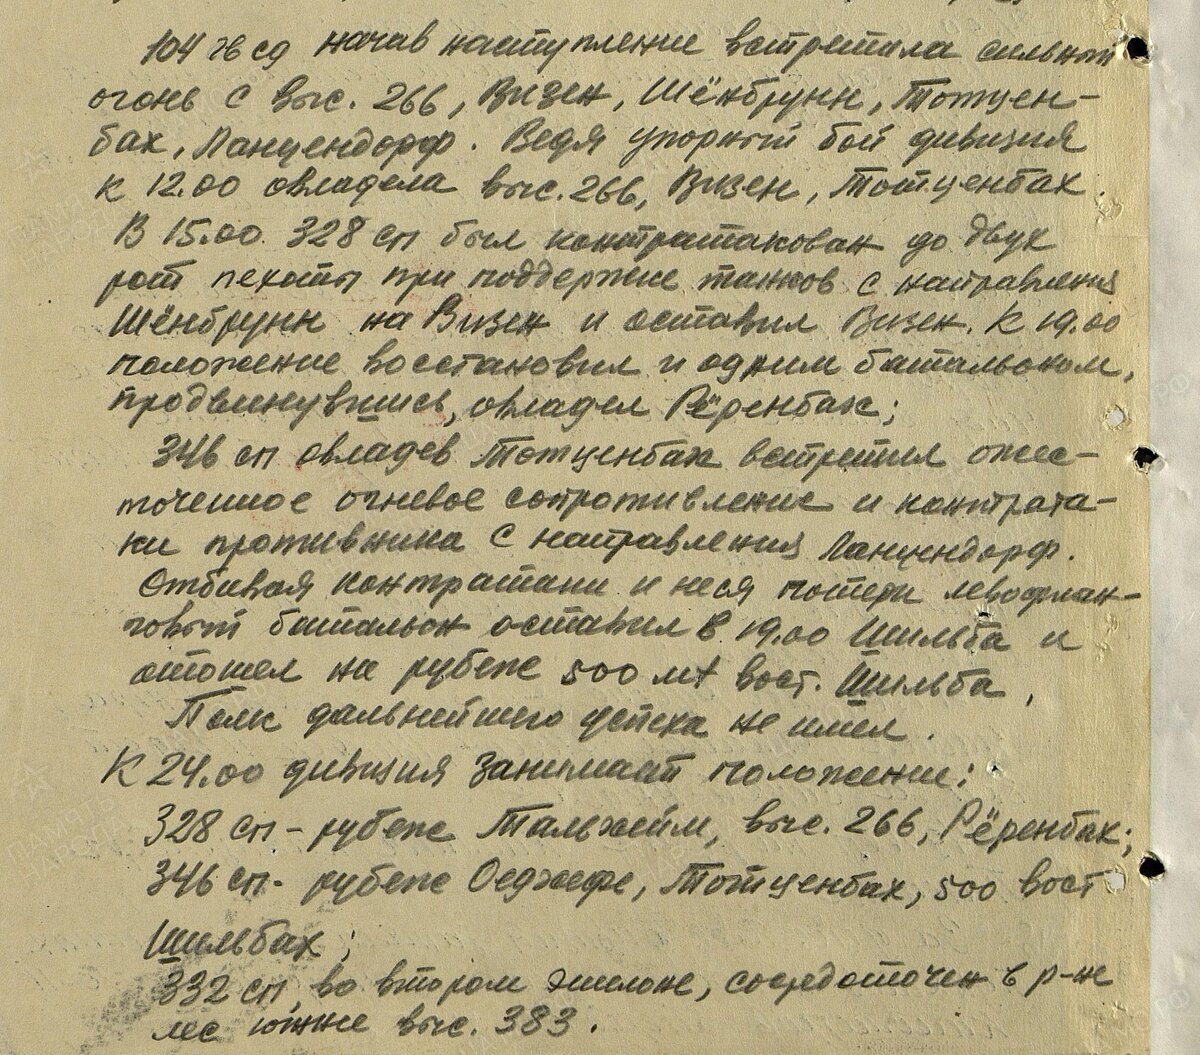 104 гв сд начав наступление встретила сильный
огонь с выс. 266, Визен, Шёнбрунн, Тотцен-
бах, Ланцендорф. Ведя упорный бой дивизия
к 12.00 овладела выс. 266, Визен, Тотценбах.
В 15.00. 328 сп был контратакован до двух
рот пехоты при поддержке танков с направления
Шёнбрунн на Визен и оставил Визен. К 19.00
положение восстановил и одним батальоном,
продвинувшись, овладел Рёренбах;
346 сп овладев Тотценбах встретил ожес-
точенное огневое сопротивление и контрата-
ки противника с направления Ланцендорф.
Отбивая контратаки и неся потери левофлан-
говый батальон оставил в 19.00 Шильба и
отошел на рубеж 500 мт вост. Шильба.
Полк дальнейшего успеха не имел.
К 24.00 дивизия занимает положение:
328 сп - рубеж Тальхейм, выс. 266, Рёренбах;
346 сп - рубеж Оеджефе, Тотценбах, 500 вост
Шильбах;
332 сп, во втором эшелоне, сосредоточен в р-не
лес южнее выс. 383.
ПАМЯТЬ
НАРОДА
ПАМЯТЬ
НАРОДА